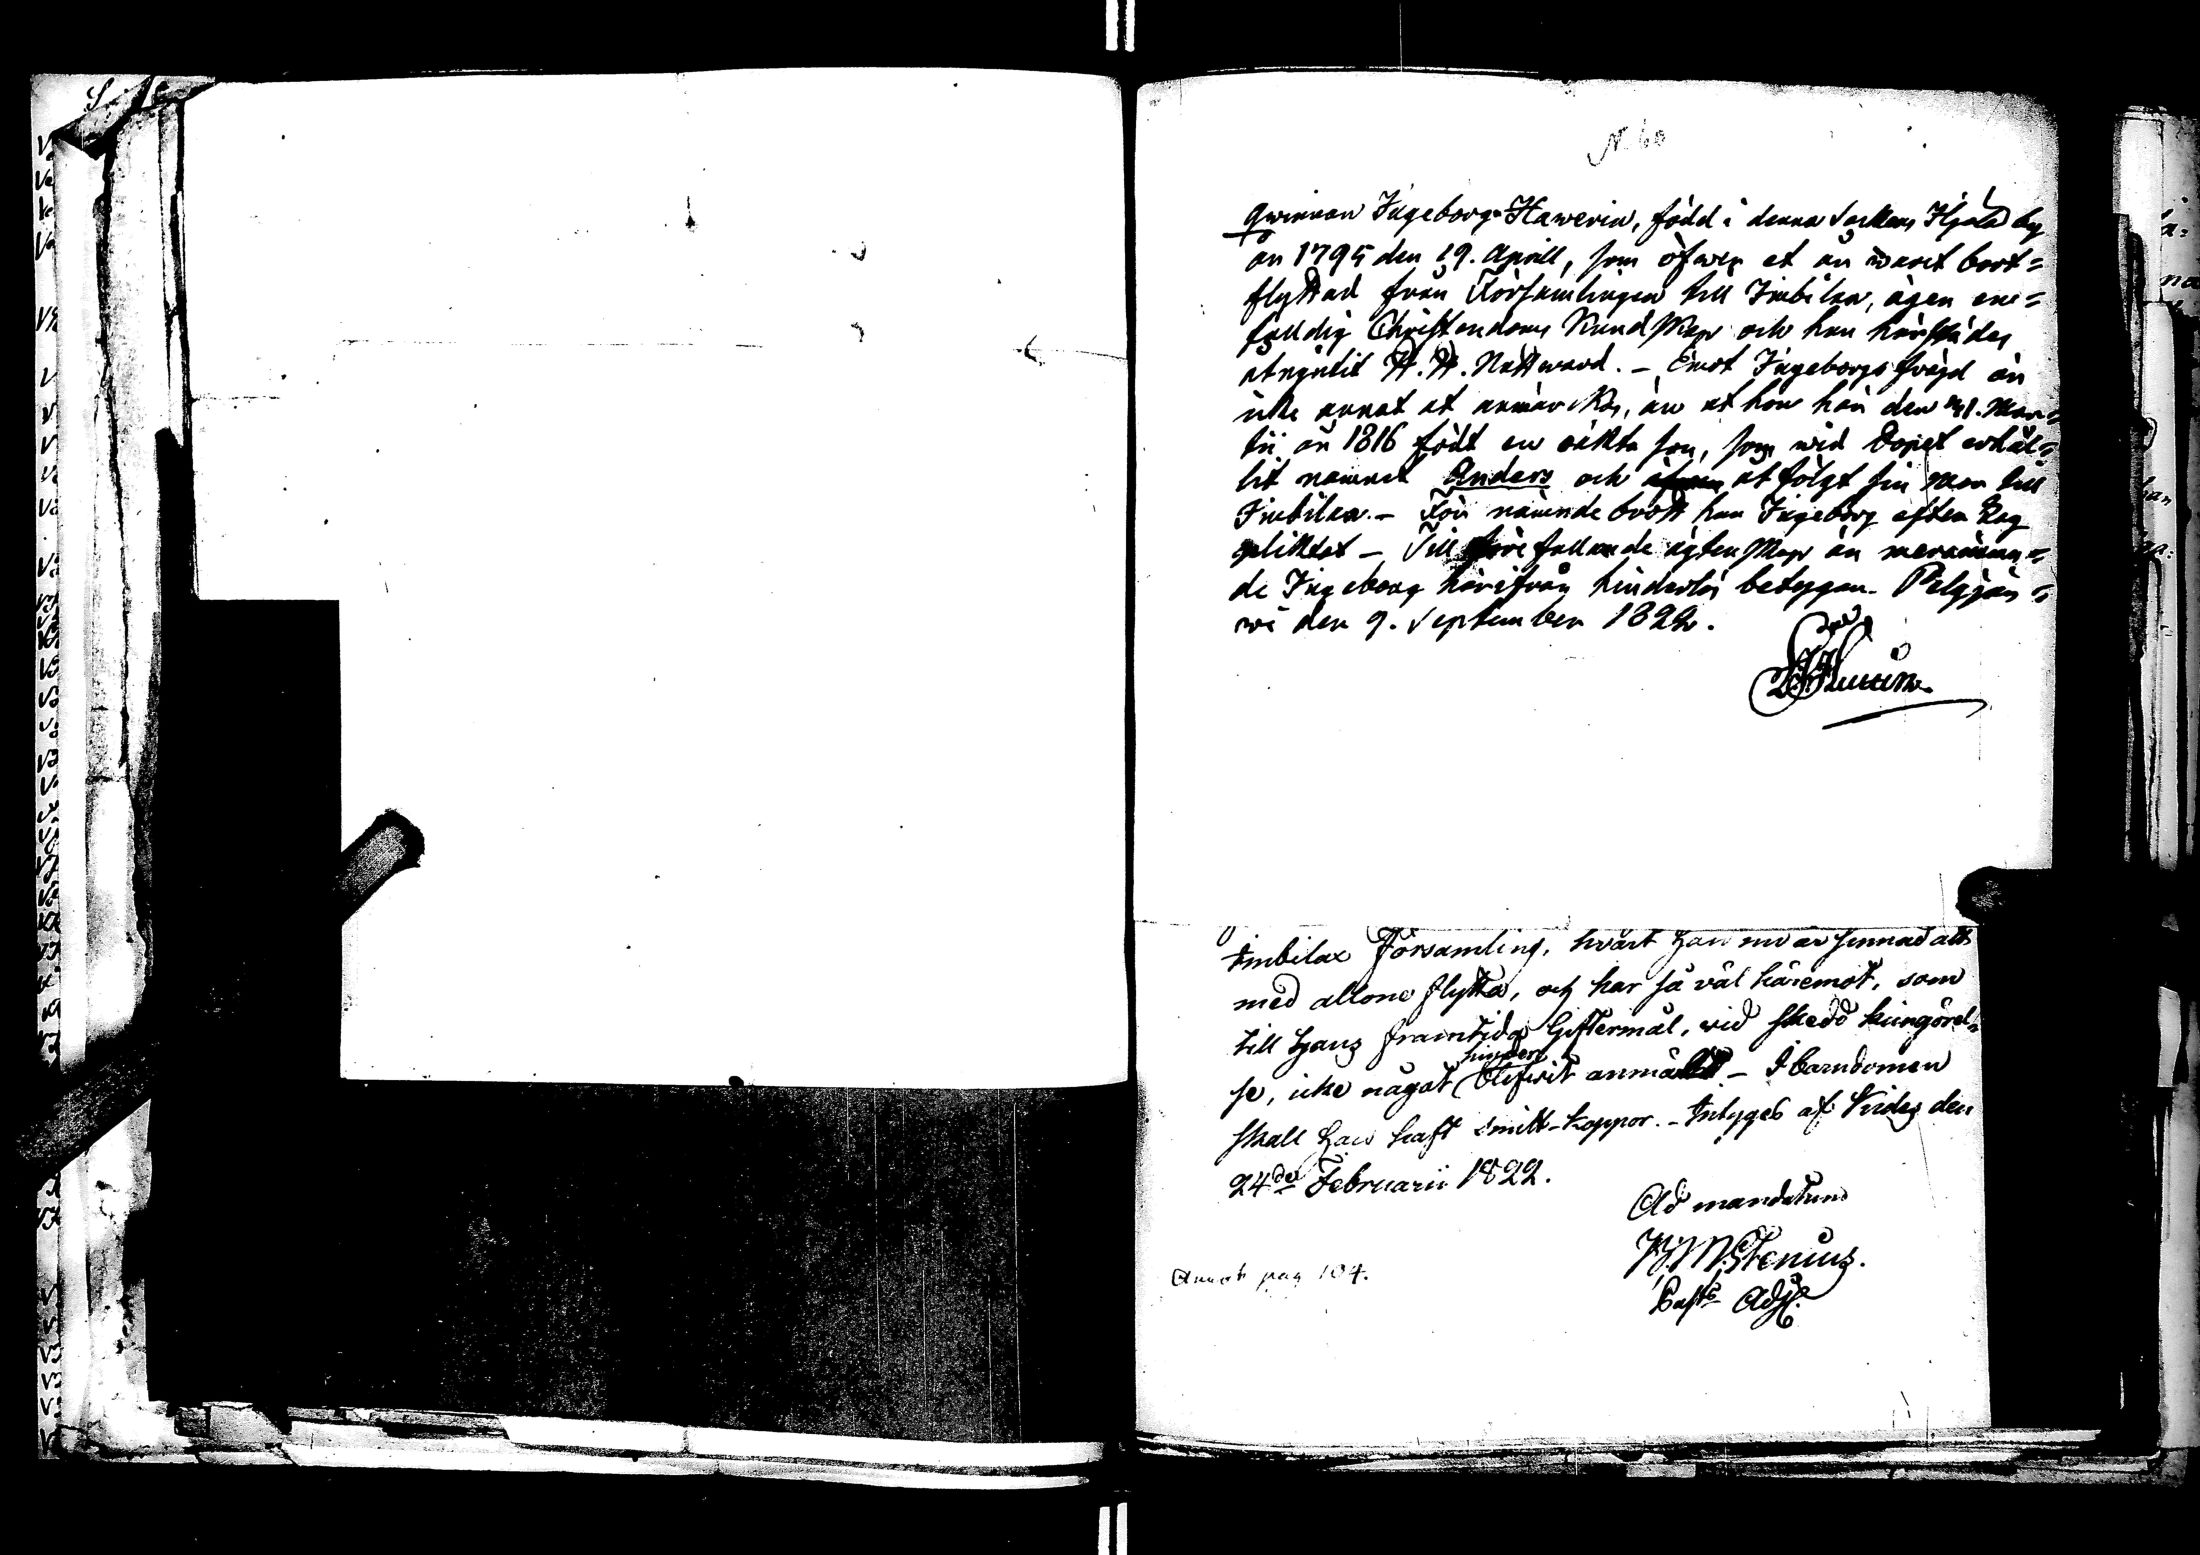 N. 60
Qwinnan Ingeborg Hawerin, född i denna Sockens Hjola by
år 1795 den 19. Aprill, som öfwer et år waret bort=
flyttad från Församlingen till Imbilax, ägen en=
falldig Christendoms Kundskap och har härstädes
atnjutit H. H. Nattward. – Emot Ingeborgs fräjd är
icke annat at anmärka, än at hon här den 21. Mar=
tii år 1816 födt en oäkta son, som wid Dopet erhål=
lit namnet Anders och åt följgt sin mor till
Imbilax. – För nämnde brott har Ingeborg efter Lag
pliktat – Till förefallande ägtenskap är merenämn=
de Ingeborg härifrån hinderlös betygar. Pelgjär=
wi den 9. September 1822.
Imbilax Församling, hvart han nu är sinnad att
med allone flytta, och har så väl häremot, som
till hans framtida Giftermål, vid skedd kungörel=
se, icke något hinder blifwit anmäldt – I barndomen
skall han haft Smitt-koppor. – Intygas af Kides den
24de Februarii 1822.
Ad mandatum
M. Stenius.
Past. Adj.
Annot. pag 104.